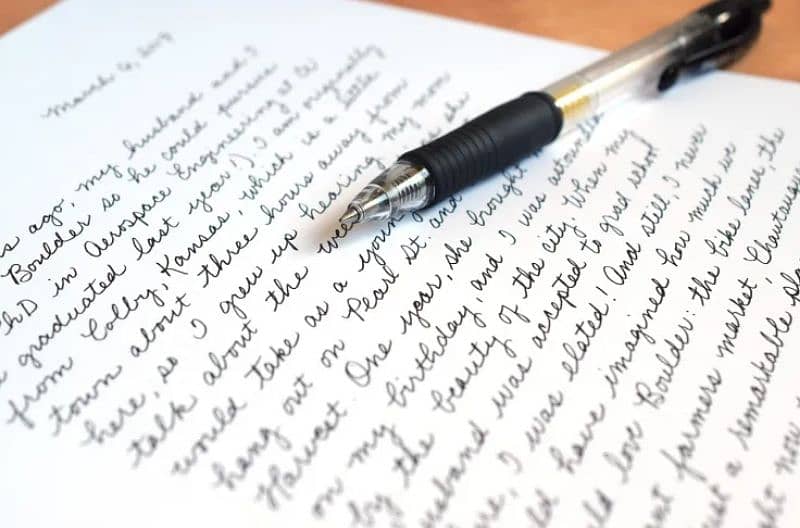 March 6,
ago, my husband and I
Boulder so he could pursue
PhD in Aerospace Engineering at CU
graduated last year!). I am originally
from Colby, Kansas, which is a little
town about three hours away from
here, so I grew up hearing my mom
talk about the
would take as a young
hang out on Pearl St. and
Harvest. One year, she brought
on my birthday, and I was astounded
by the beauty of the city. When my
usband was accepted to grad school
ere, I was elated! And still, I never
ld have imagined how much we
ld love Boulder: the bike lanes, the
nt farmers market, Chautauqu
ust a remarkable pla
ht now